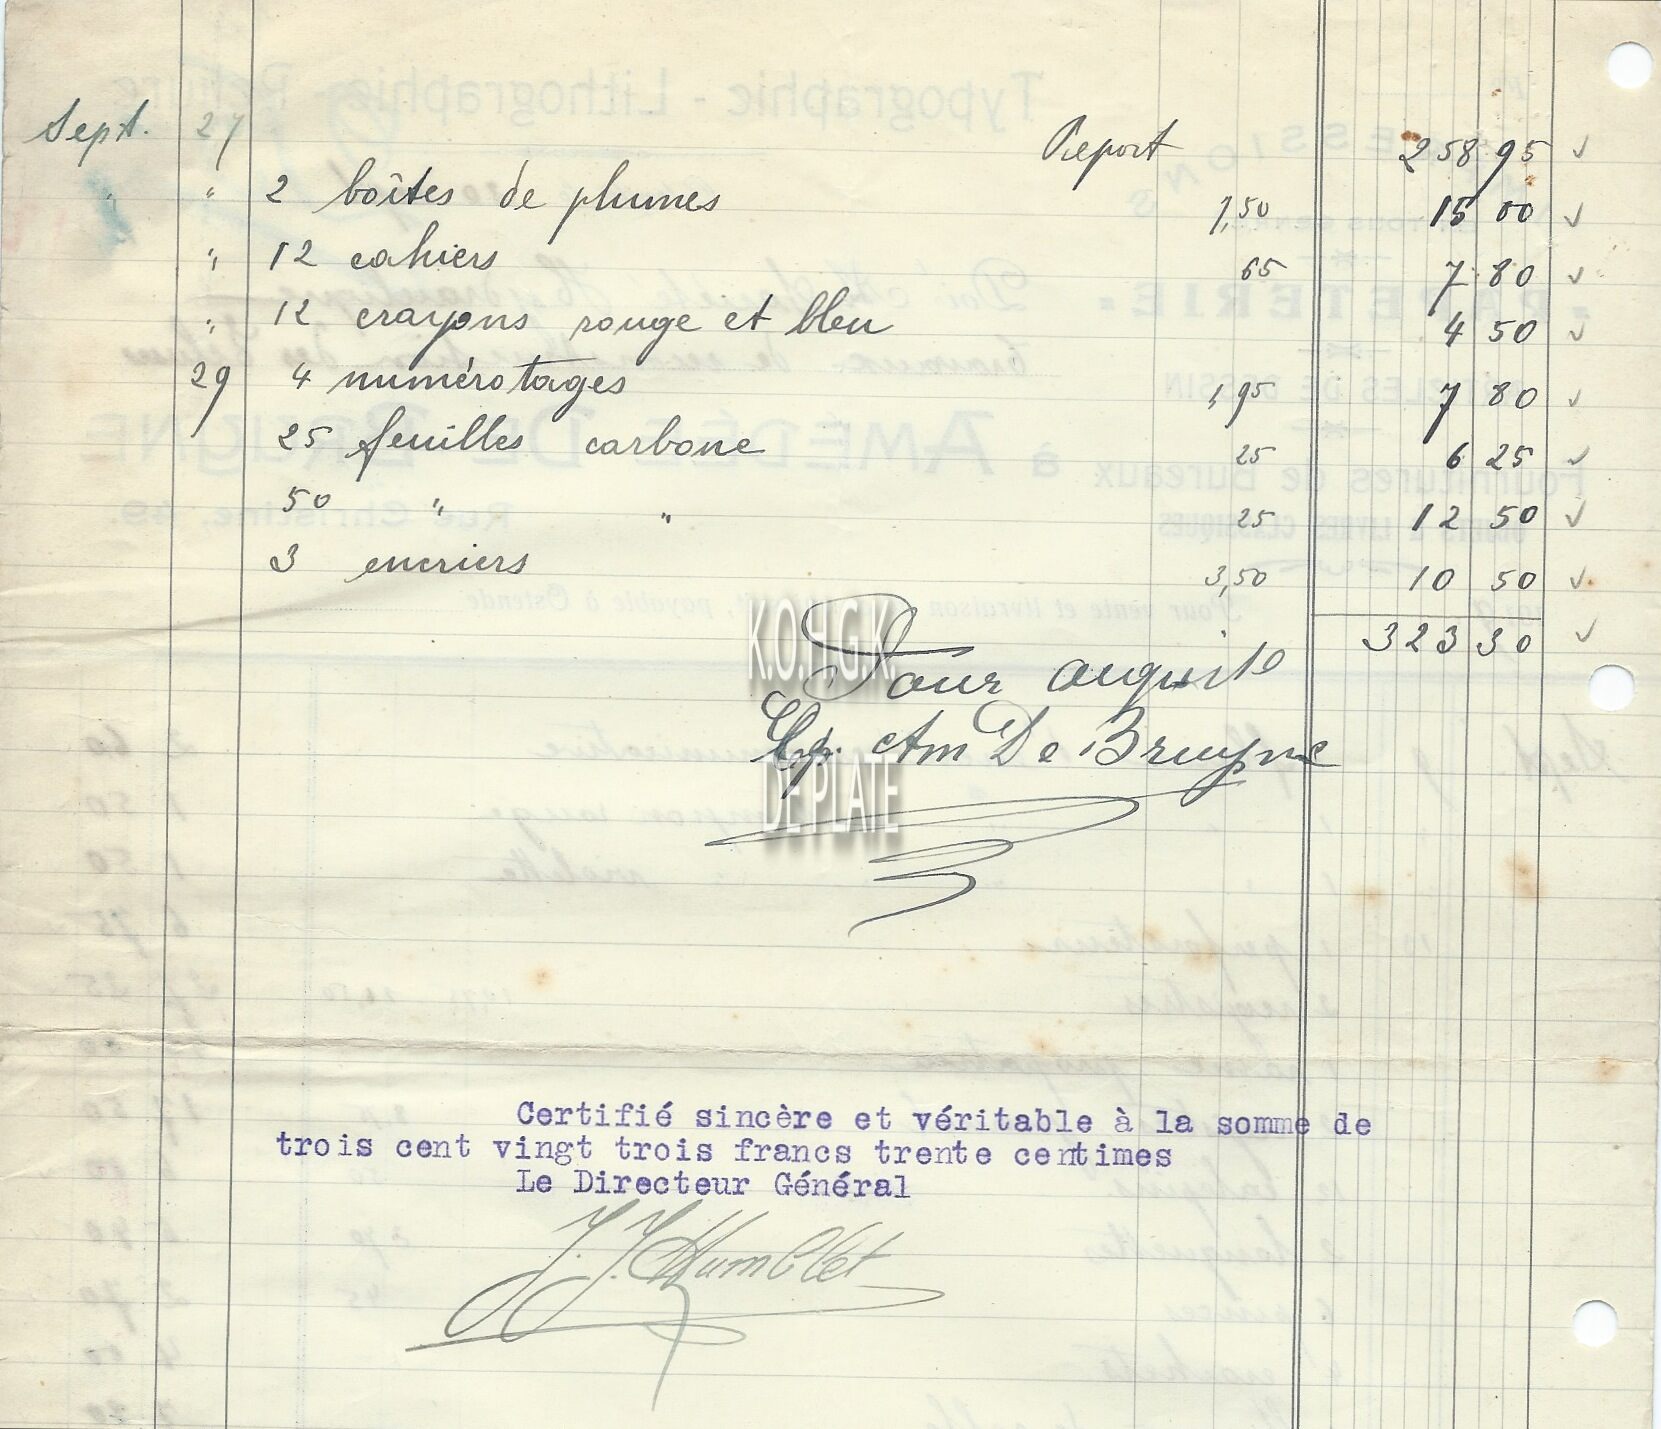 Sept. 27 Report 258 95
" " 2 boîtes de plumes 7,50 15 00
" 12 cahiers 65 7 80
" 12 crayons rouge et bleu 4 50
29 4 numérotages 1,95 7 80
25 feuilles carbone 25 6 25
50 " " 25 12 50
3 encriers 3,50 10 50
323 30
K.O.H.G.K.
Pour acquit
Am De Bruyne
DE PLATE
Certifié sincère et véritable à la somme de
trois cent vingt trois francs trente centimes
Le Directeur Général
J. J. Humblet